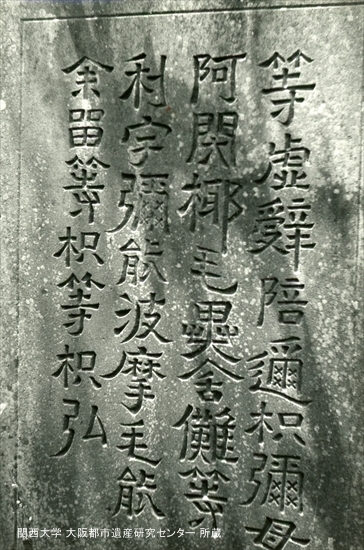 等虚辭陪邇枳彌母
阿閇椰毛異舎儺等
利宇彌能波摩毛能
余留等枳等枳弘
関西大学 大阪都市遺産研究センター 所蔵